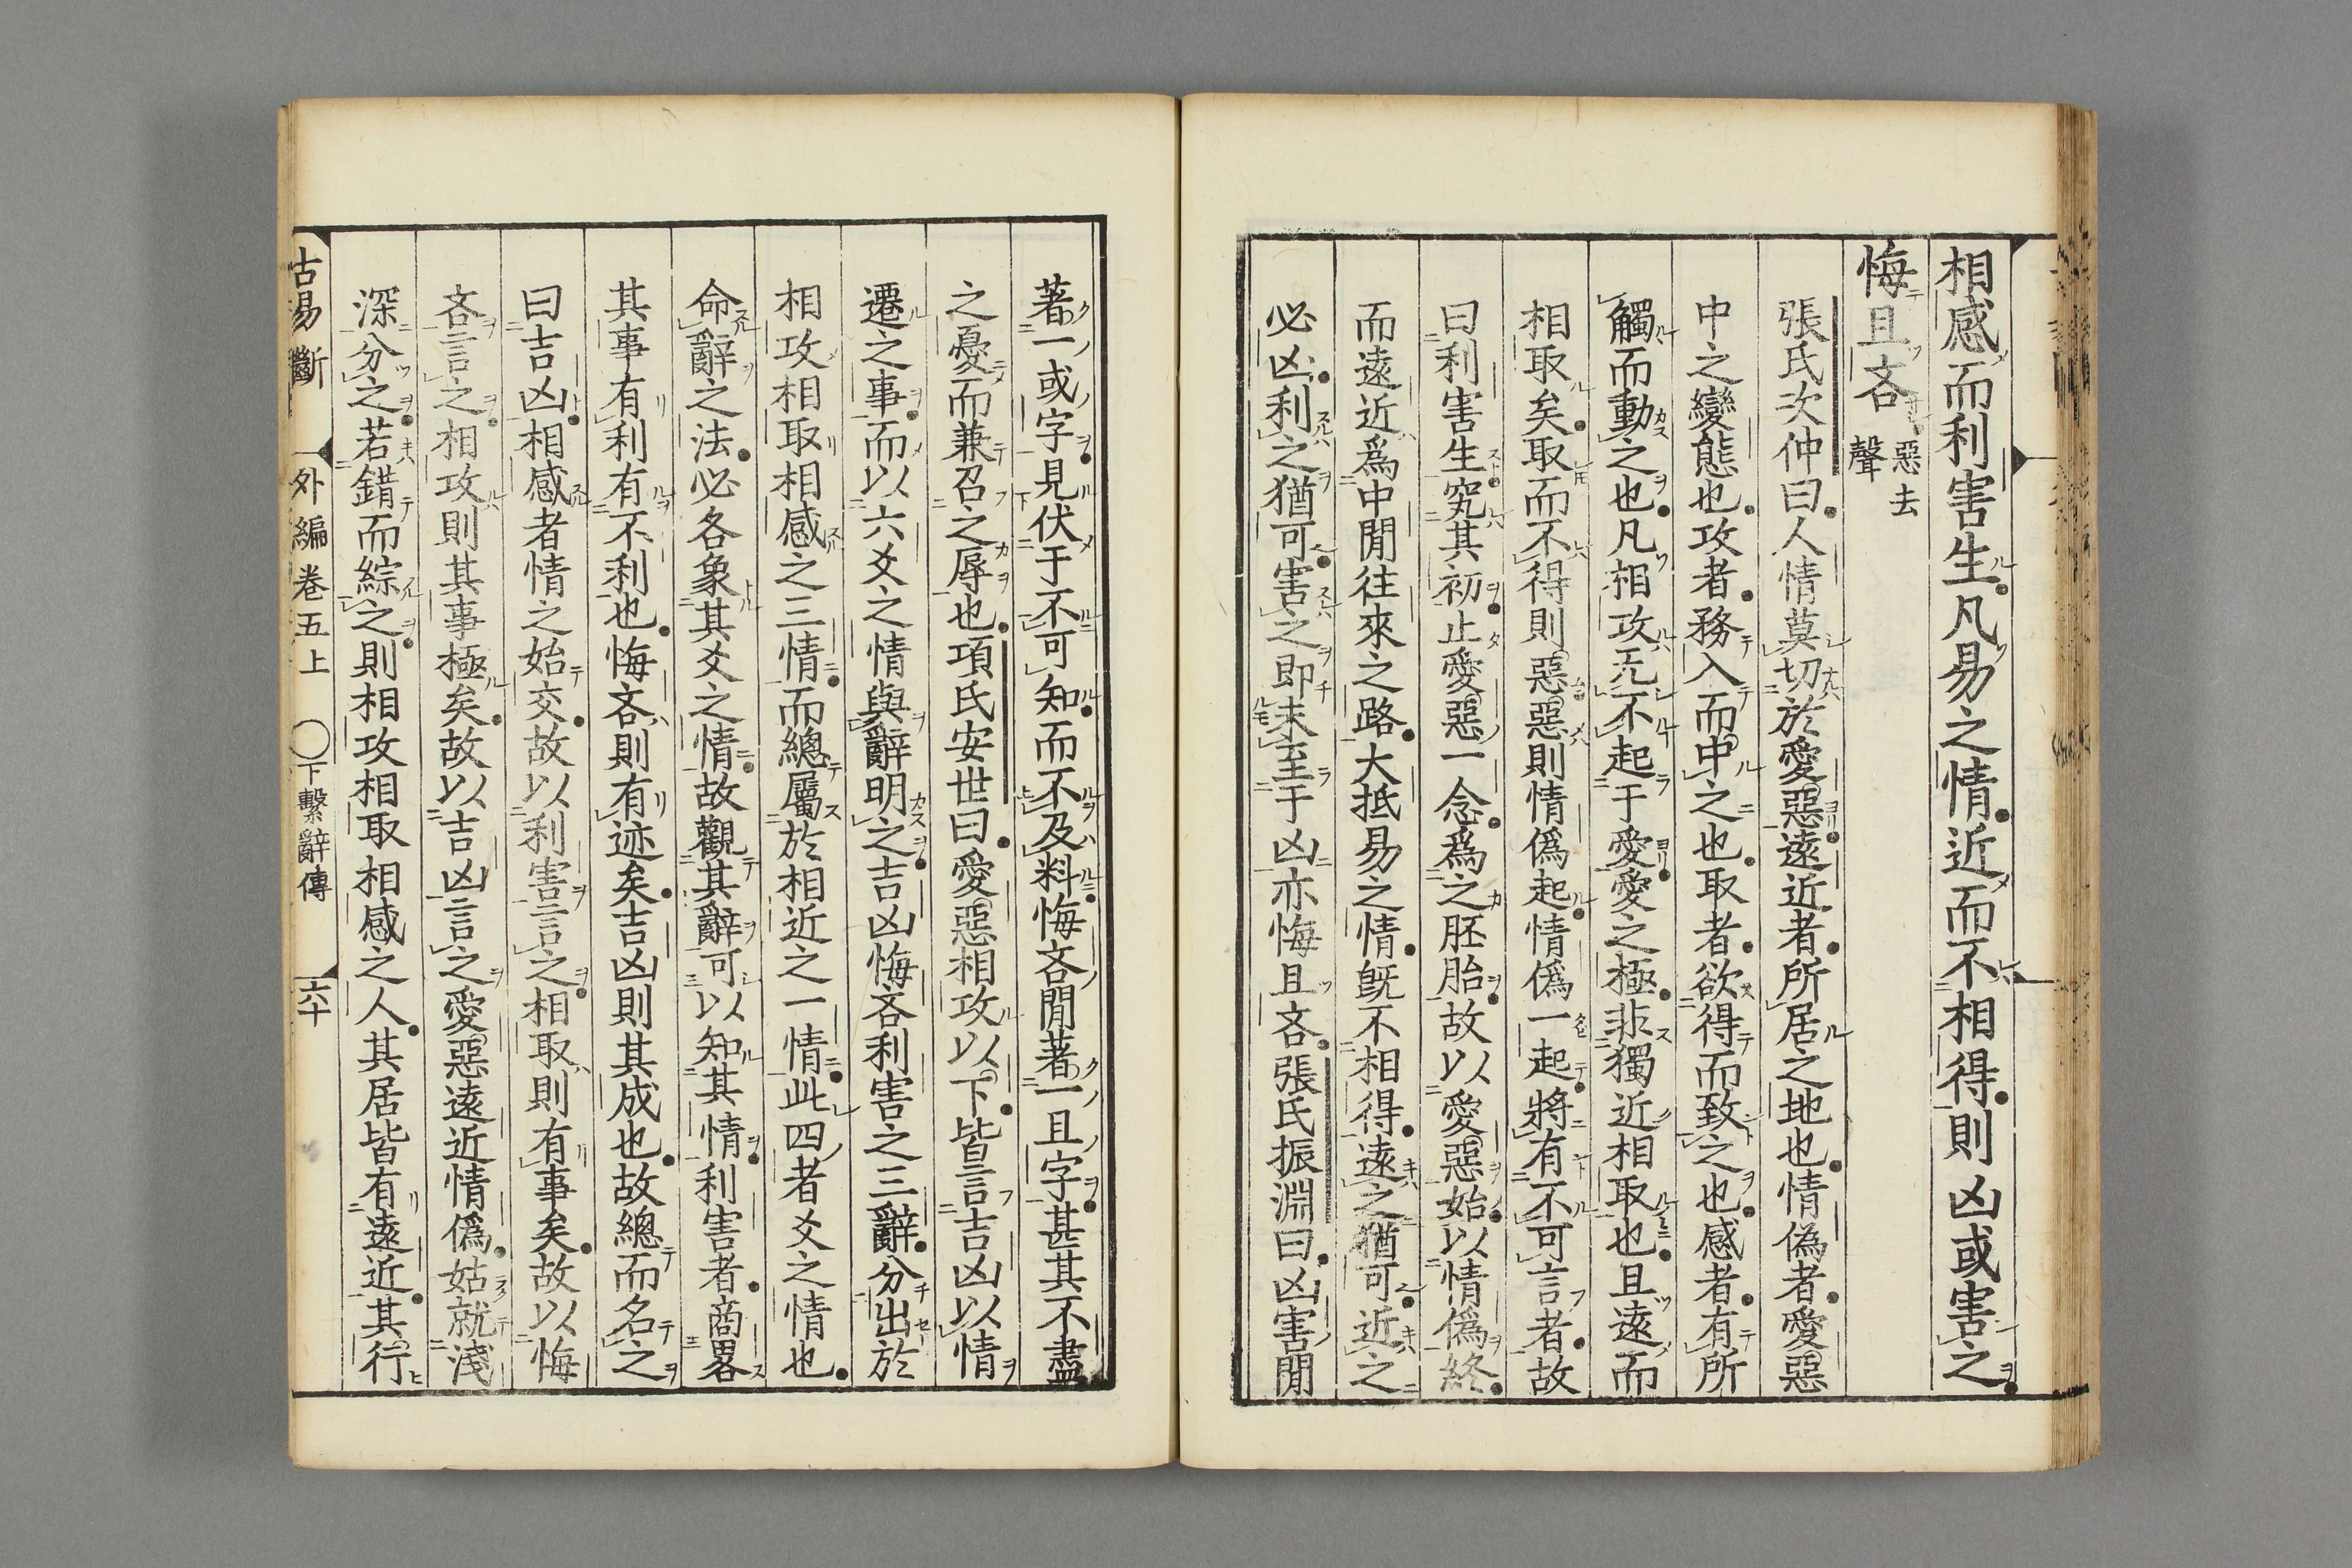 相感而利害生凡易之情近而不相得則凶或害之
悔且吝惡去聲
張氏次仲曰人情莫切於愛惡遠近者所居之地也情偽者愛惡
中之變態也攻者務入而中之也取者欲得而致之也感者有所
觸而動之也凡相攻无不起于愛愛之極非獨近相取也且遠而
相取矣取而不得則惡惡則情偽起情偽一起將有不可言者故
曰利害生究其初止愛惡一念爲之胚胎故以愛惡始以情偽終
而遠近爲中閒往來之路大抵易之情旣不相得遠之猶可近之
必凶利之猶可害之即未至于凶亦悔且吝張氏振淵曰凶害閒
著一或字見伏于不可知而不及料悔吝閒著一且字甚其不盡
之憂而兼召之辱也項氏安世曰愛惡相攻以下皆言吉凶以情
遷之事而以六爻之情與辭明之吉凶悔吝利害之三辭分出於
相攻相取相感之三情而總屬於相近之一情此四者爻之情也
命辭之法必各象其爻之情故觀其辭可以知其情利害者商畧
其事有利有不利也悔吝則有迹矣吉凶則其成也故總而名之
曰吉凶相感者情之始交故以利害言之相取則有事矣故以悔
吝言之相攻則其事極矣故以吉凶言之愛惡遠近情偽姑就淺
深分之若錯而綜之則相攻相取相感之人其居皆有遠近其行
古易斷 外編卷五上 ○下繫辭傳 六十